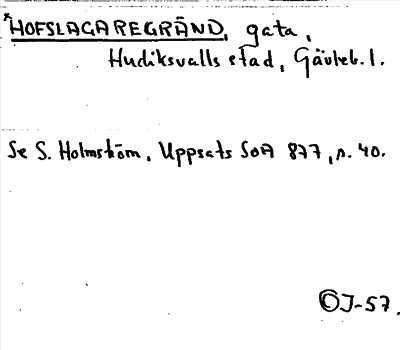 *HOFSLAGAREGRÄND, gata,
Hudiksvalls stad, Gävleb. l.
Se S. Holmström, Uppsats SOA 877, s. 40.
OJ-57.